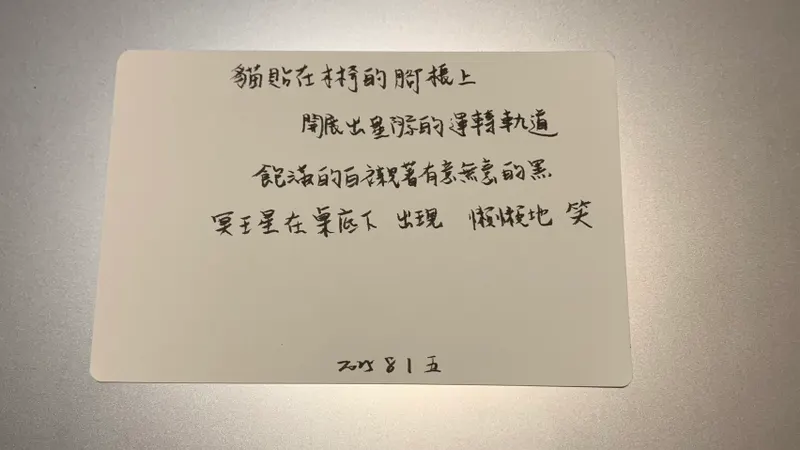 貓貼在木椅的腳根上
開展出星際的運轉軌道
飽滿的白襯著有意無意的黑
冥王星在桌底下 出現 懶懶地 笑
2025 8 1 五